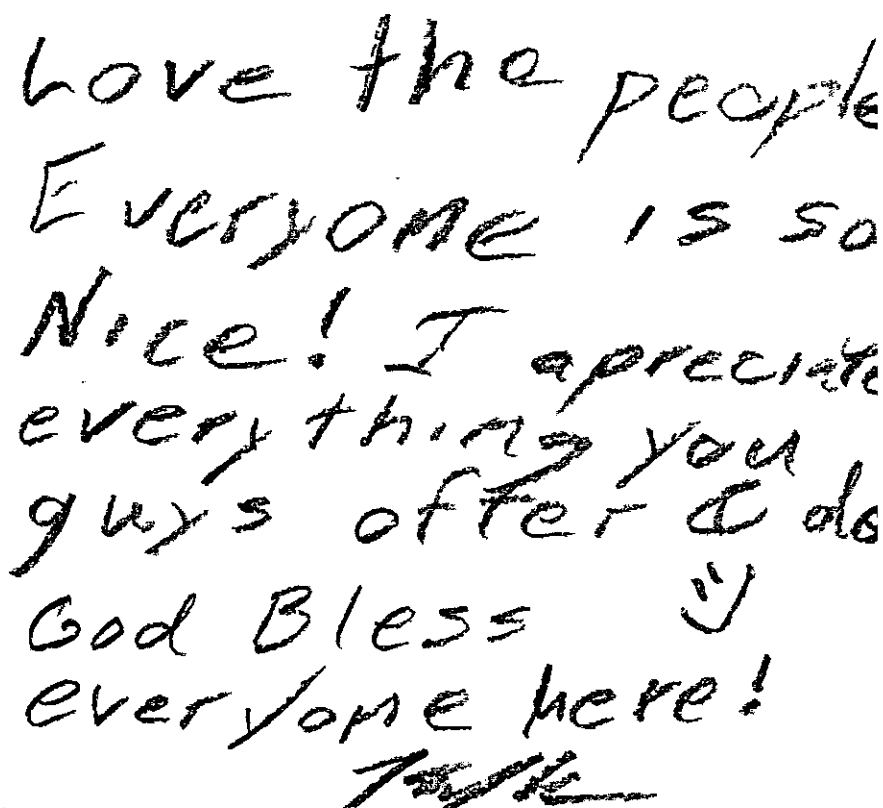 Love the people
Everyone is so
Nice! I apreciate
everything you
guys offer & do
God Bless :)
everyone here!